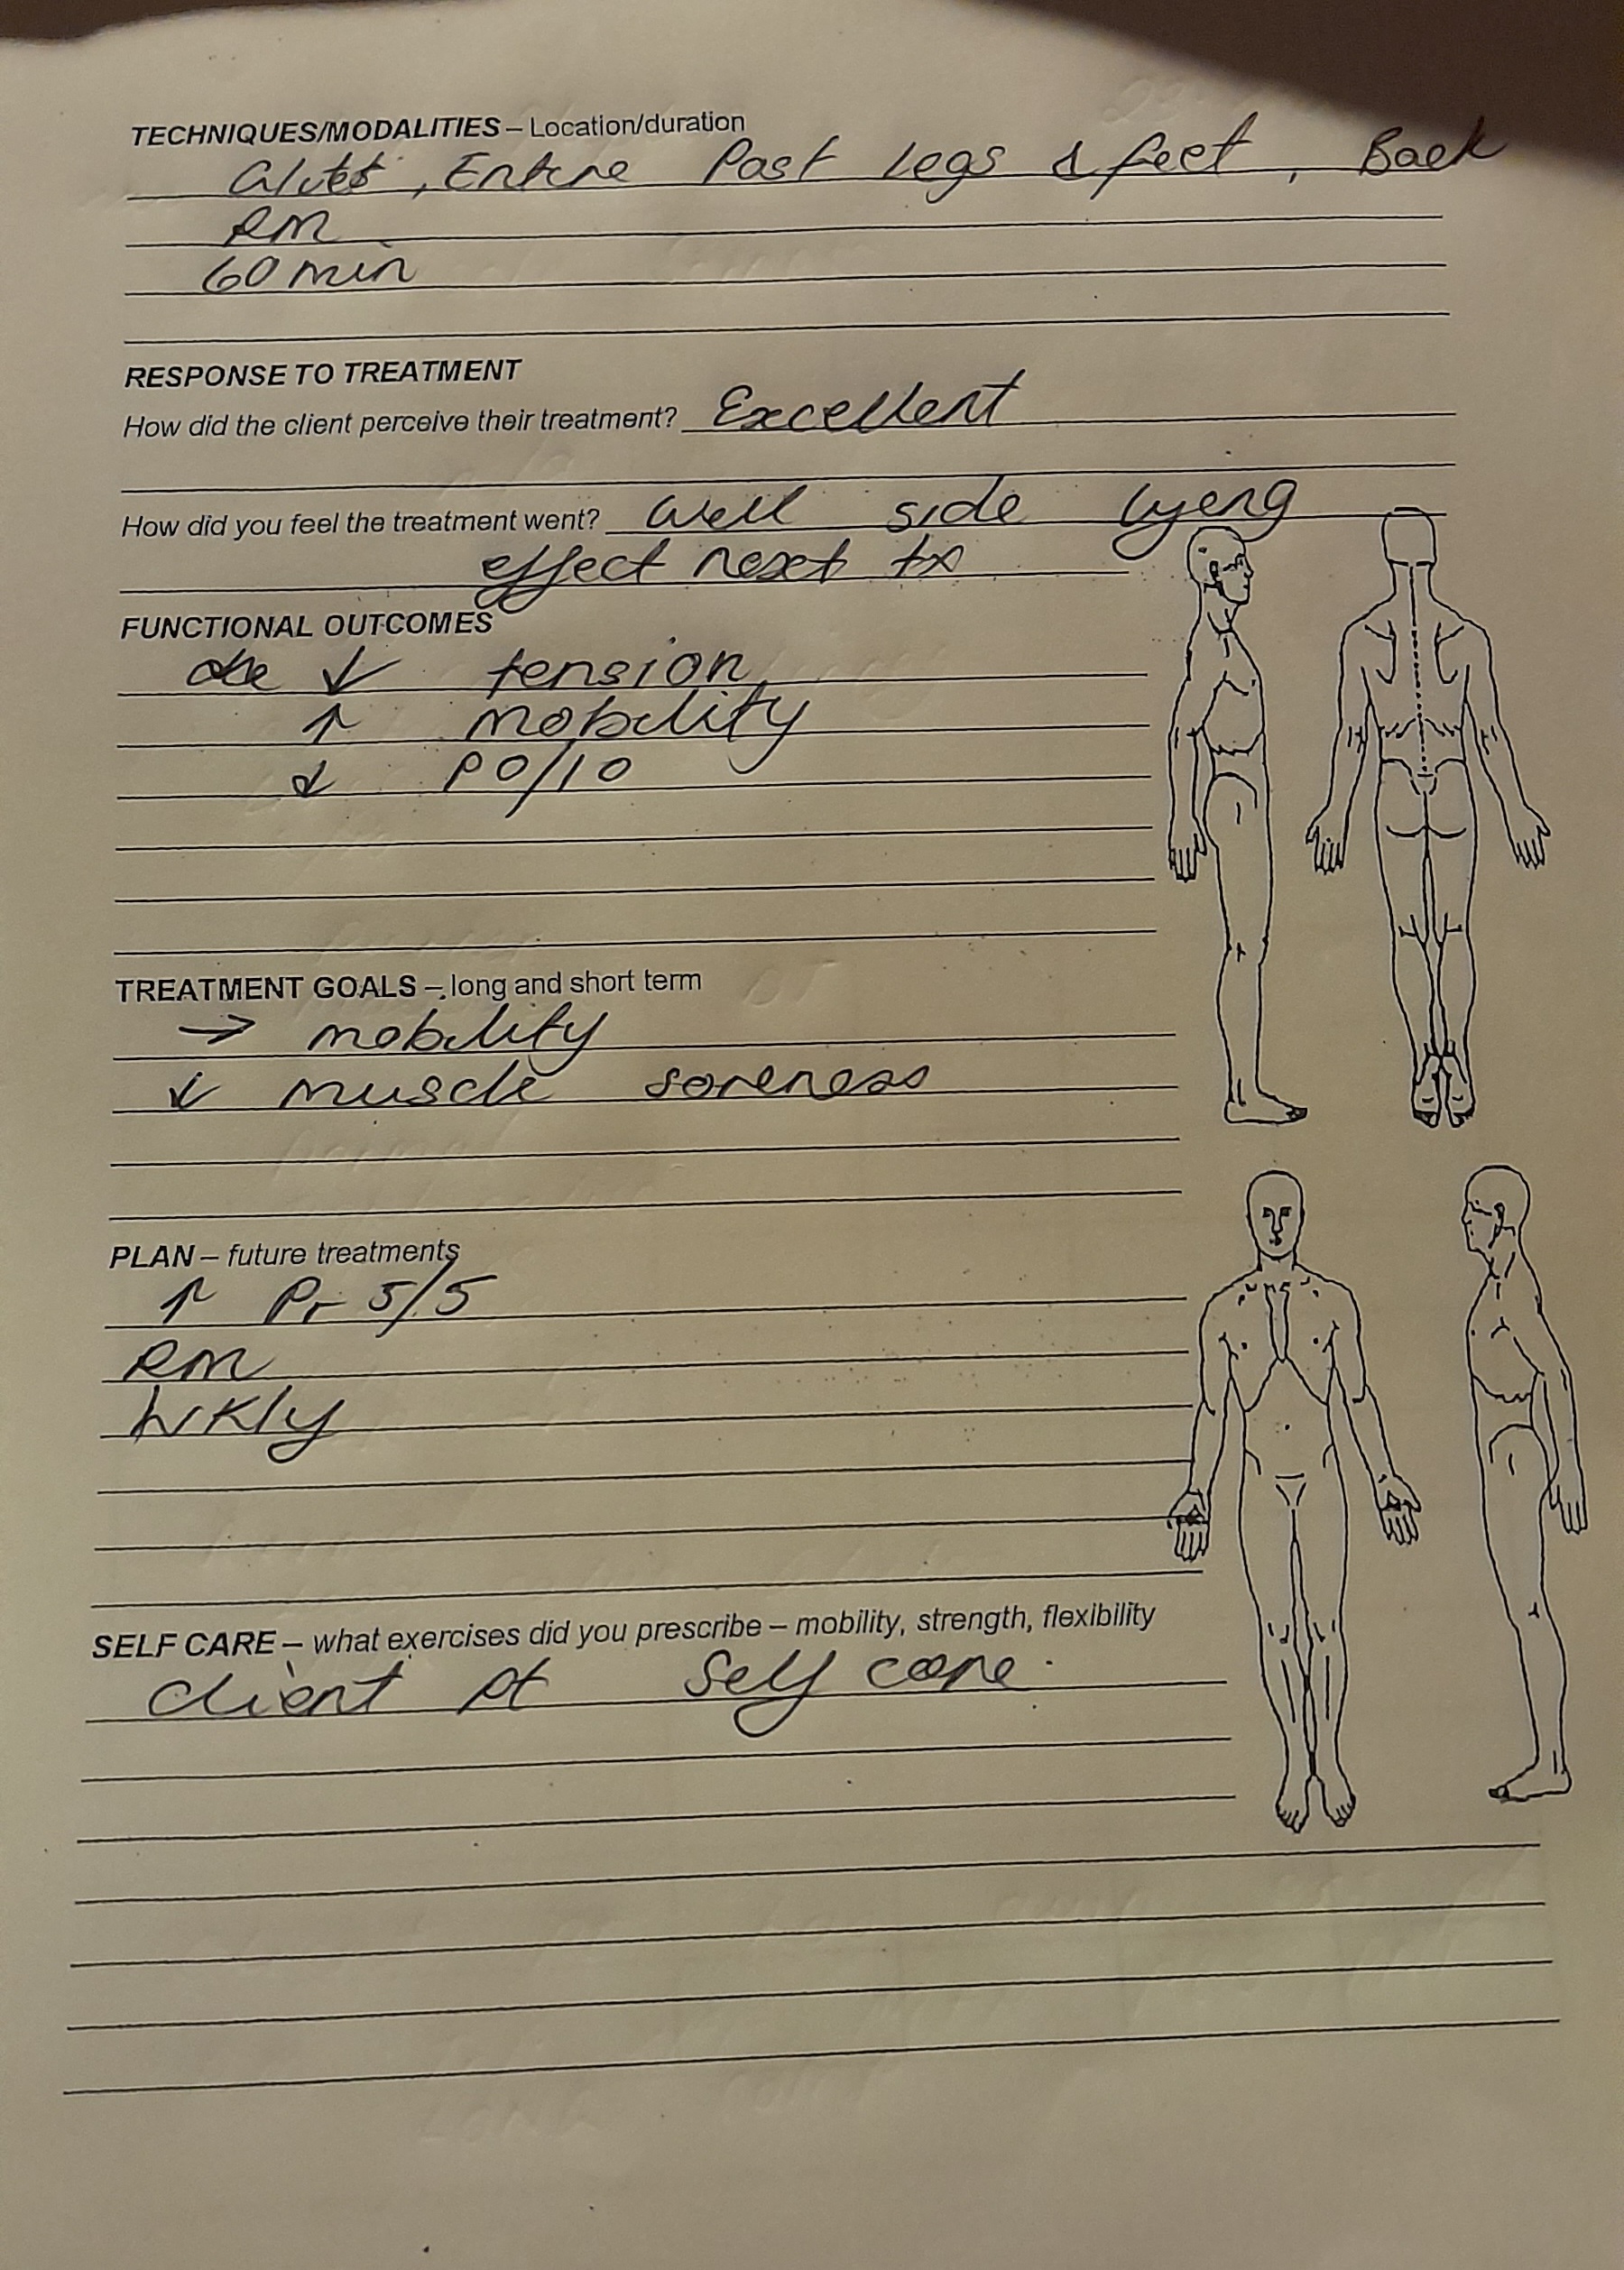 TECHNIQUES/MODALITIES – Location/duration
Glutes, Entire Post Legs & feet, Back
RM
60 min
RESPONSE TO TREATMENT
How did the client perceive their treatment? Excellent
How did you feel the treatment went? Well side lyeng
effect next tx
FUNCTIONAL OUTCOMES
↓ tension
↑ mobility
↓ P 0/10
TREATMENT GOALS – long and short term
→ mobility
↓ muscle soreness
PLAN – future treatments
↑ Pr 5/5
RM
Wkly
SELF CARE – what exercises did you prescribe – mobility, strength, flexibility
client pt Self care.